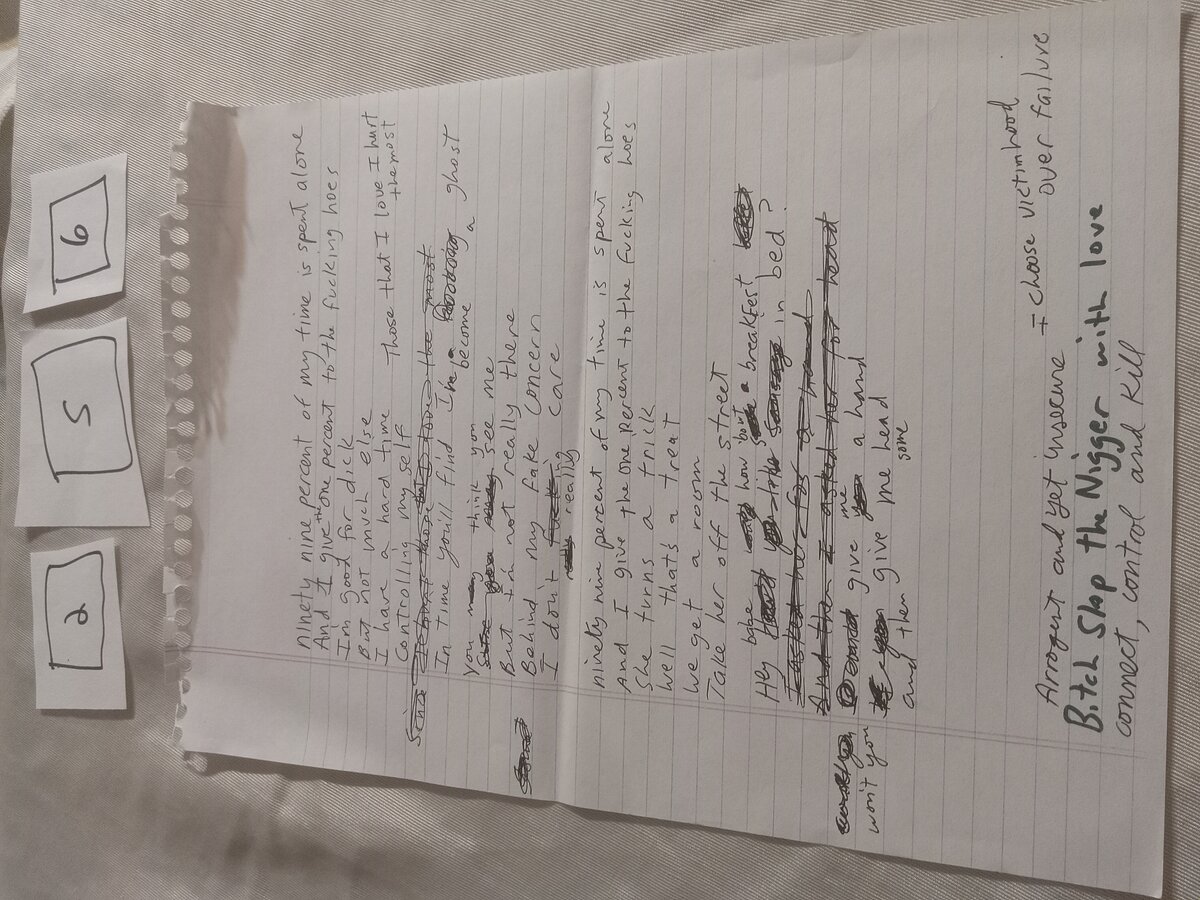 2
5
6
Ninety nine percent of my time is spent alone
And I give the one percent to the fucking hoes
Im good for dick
But not much else
I have a hard time
Controlling my self
Those that I love I hurt
the most
In time you'll find I've become a ghost
you think you see me
But I'm not really there
Behind my fake concern
I don't really care
Ninety nine percent of my time is spent alone
And I give the one percent to the fucking hoes
She turns a trick
Well thats a treat
We get a room
Take her off the street
Hey babe how bout a breakfest
in bed?
won't you give me a hand
and then give me some head
Arrogent and yet insecure
I choose victimhood
over failure
Bitch Slap the Nigger with love
connect, control and Kill